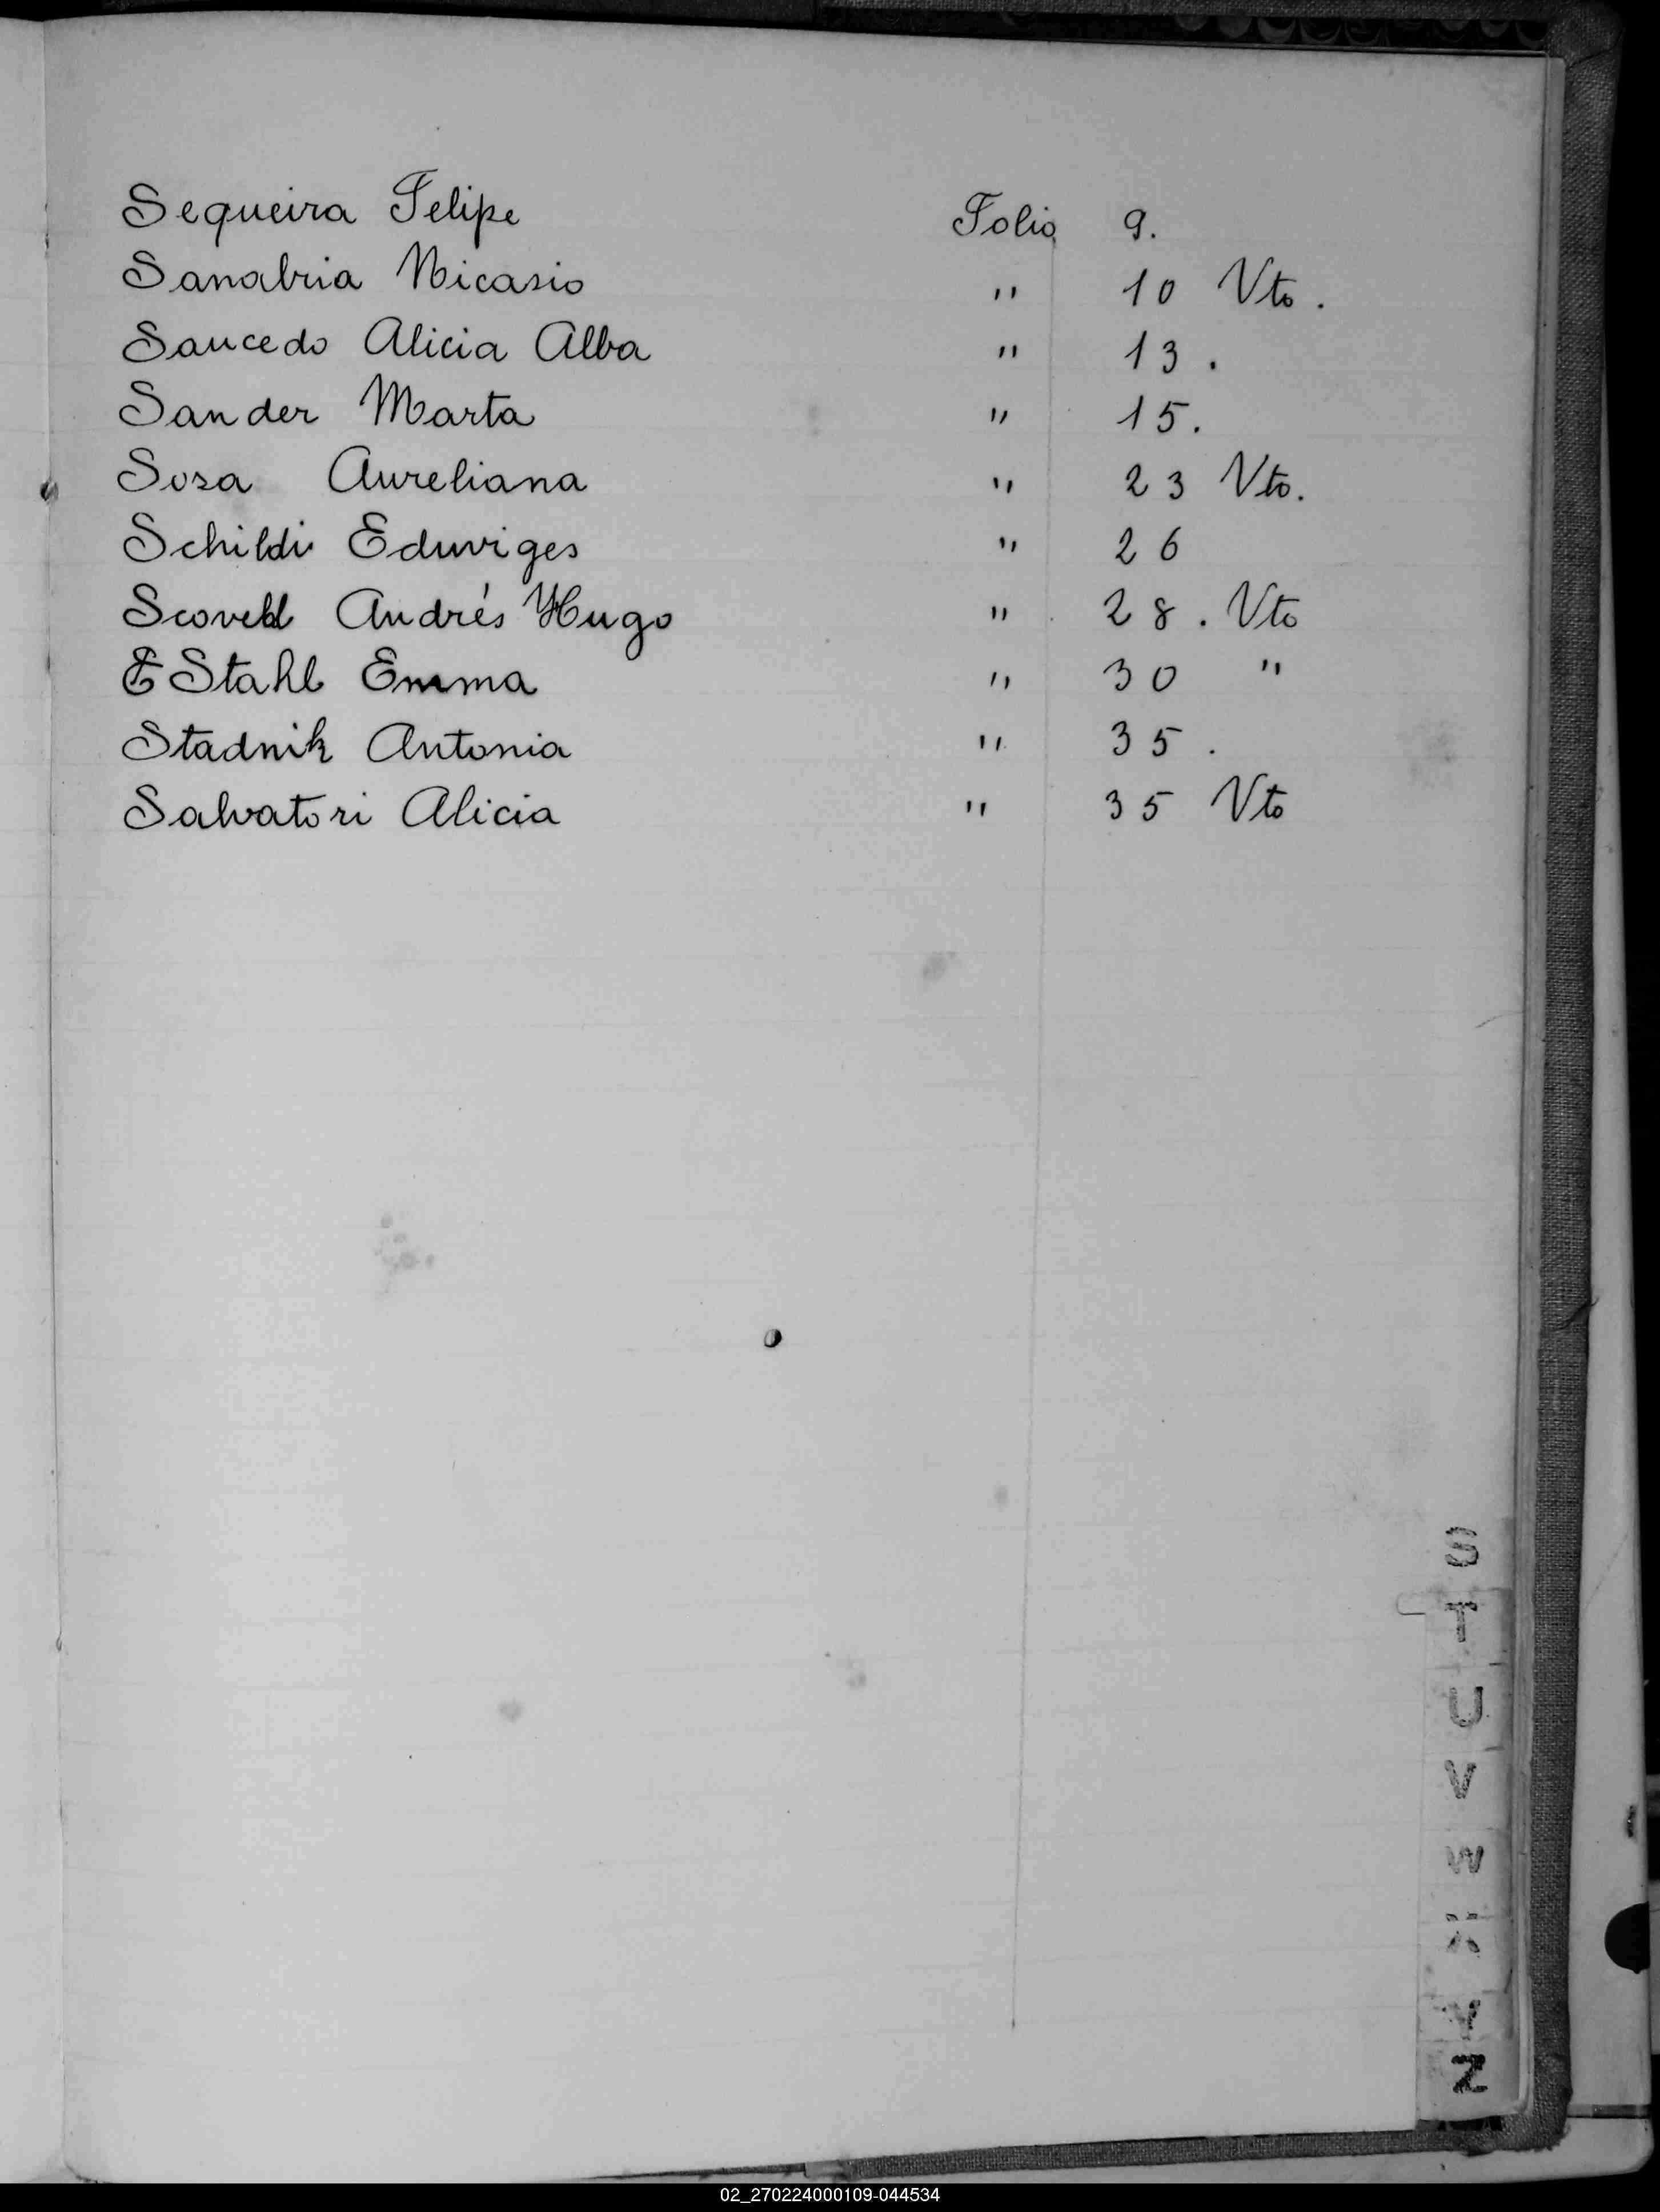 Sequeira Felipe Folio 9.
Sanabria Nicasio " 10 Vto.
Saucedo Alicia Alba " 13.
Sander Marta " 15.
Sosa Aureliana " 23 Vto.
Schildi Eduviges " 26
Scovell Andrés Hugo " 28. Vto
Stahl Emma " 30 "
Stadnik Antonia " 35.
Salvatori Alicia " 35 Vto
S
T
U
V
W
X
Y
Z
02_270224000109-044534